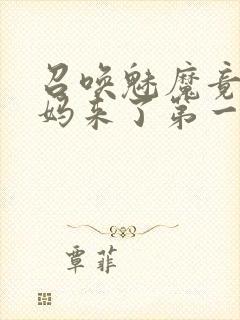 召唤魅魔竟
妈来了第一
覃菲